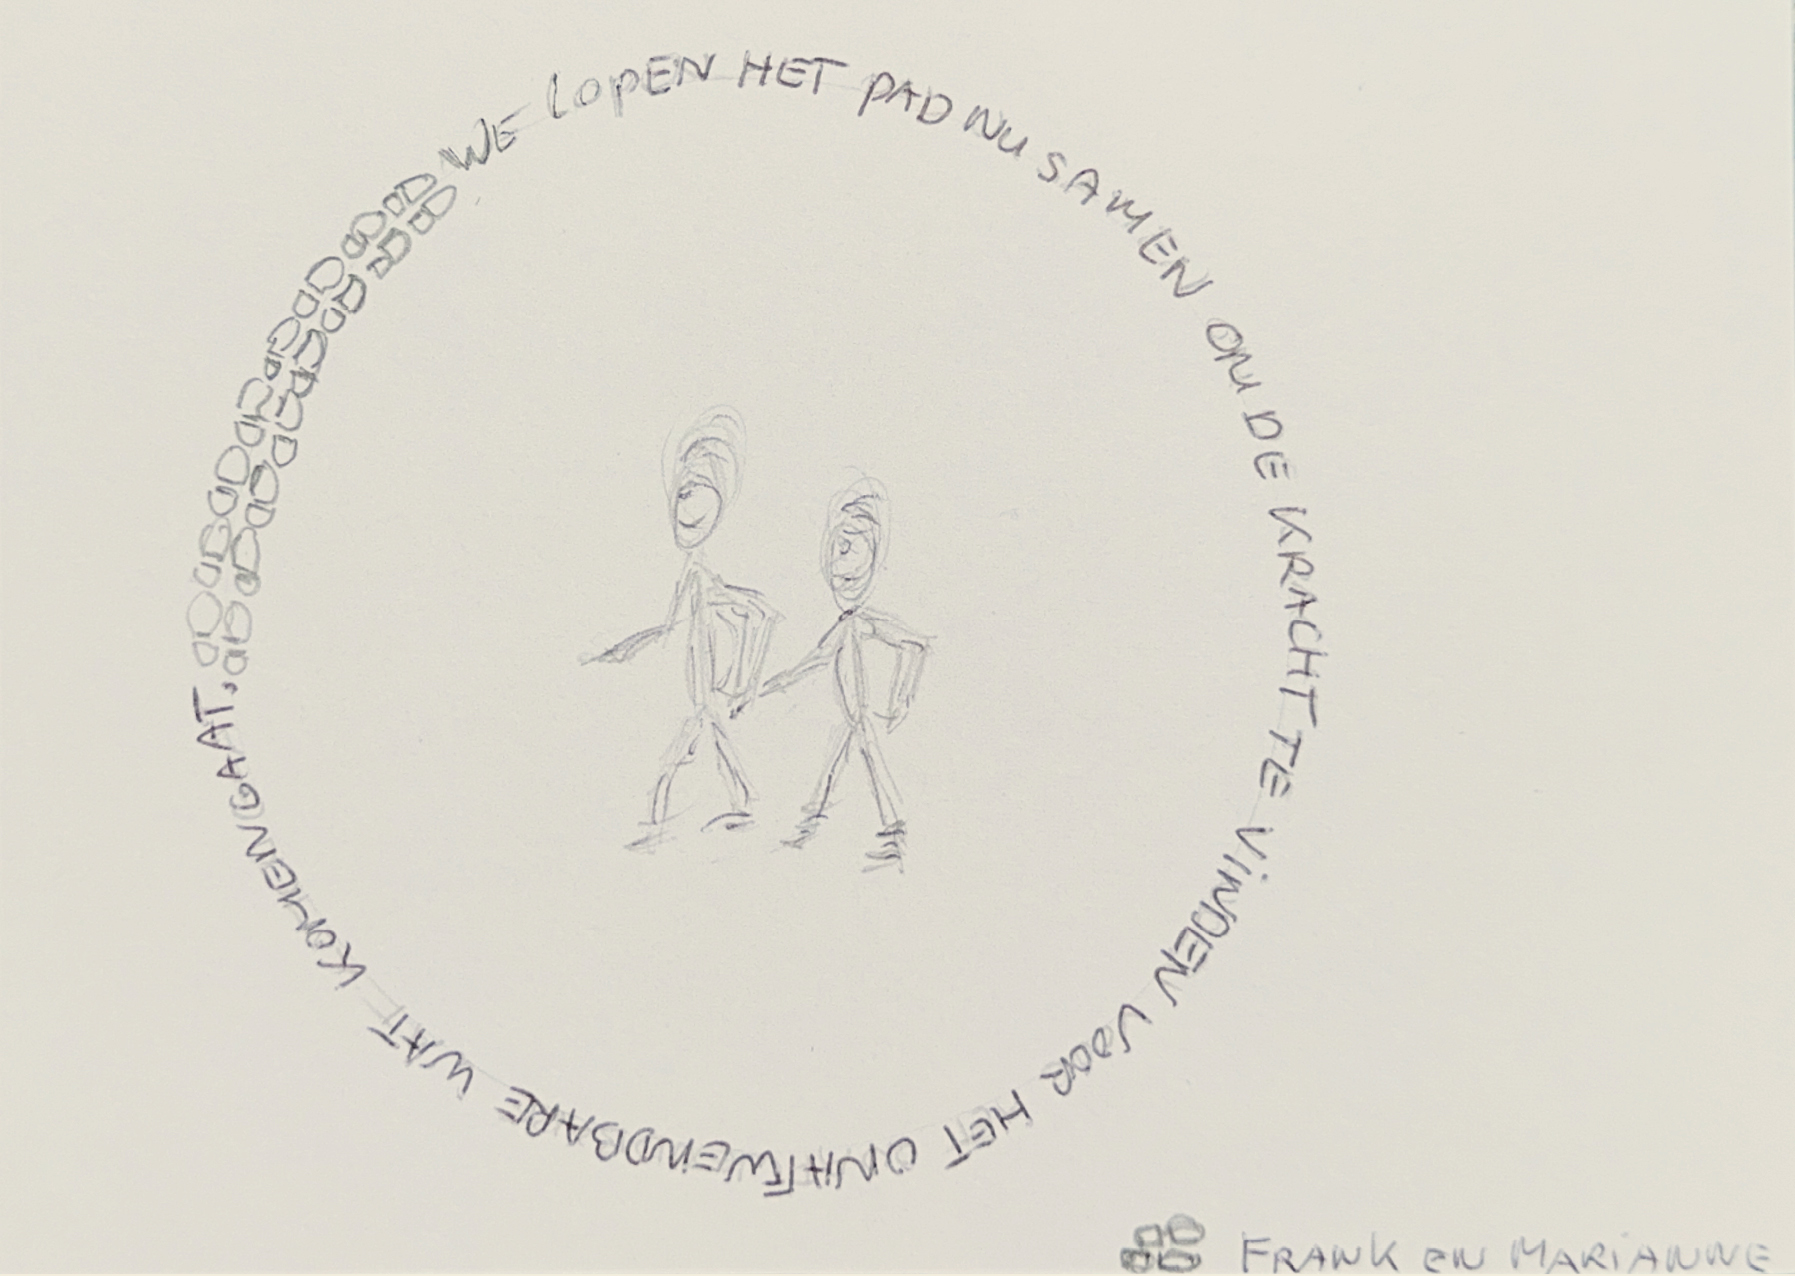 WE LOPEN HET PAD NU SAMEN OM DE KRACHT TE VINDEN VOOR HET ONAFWENDBARE WAT KOMEN GAAT.
FRANK EN MARIANNE